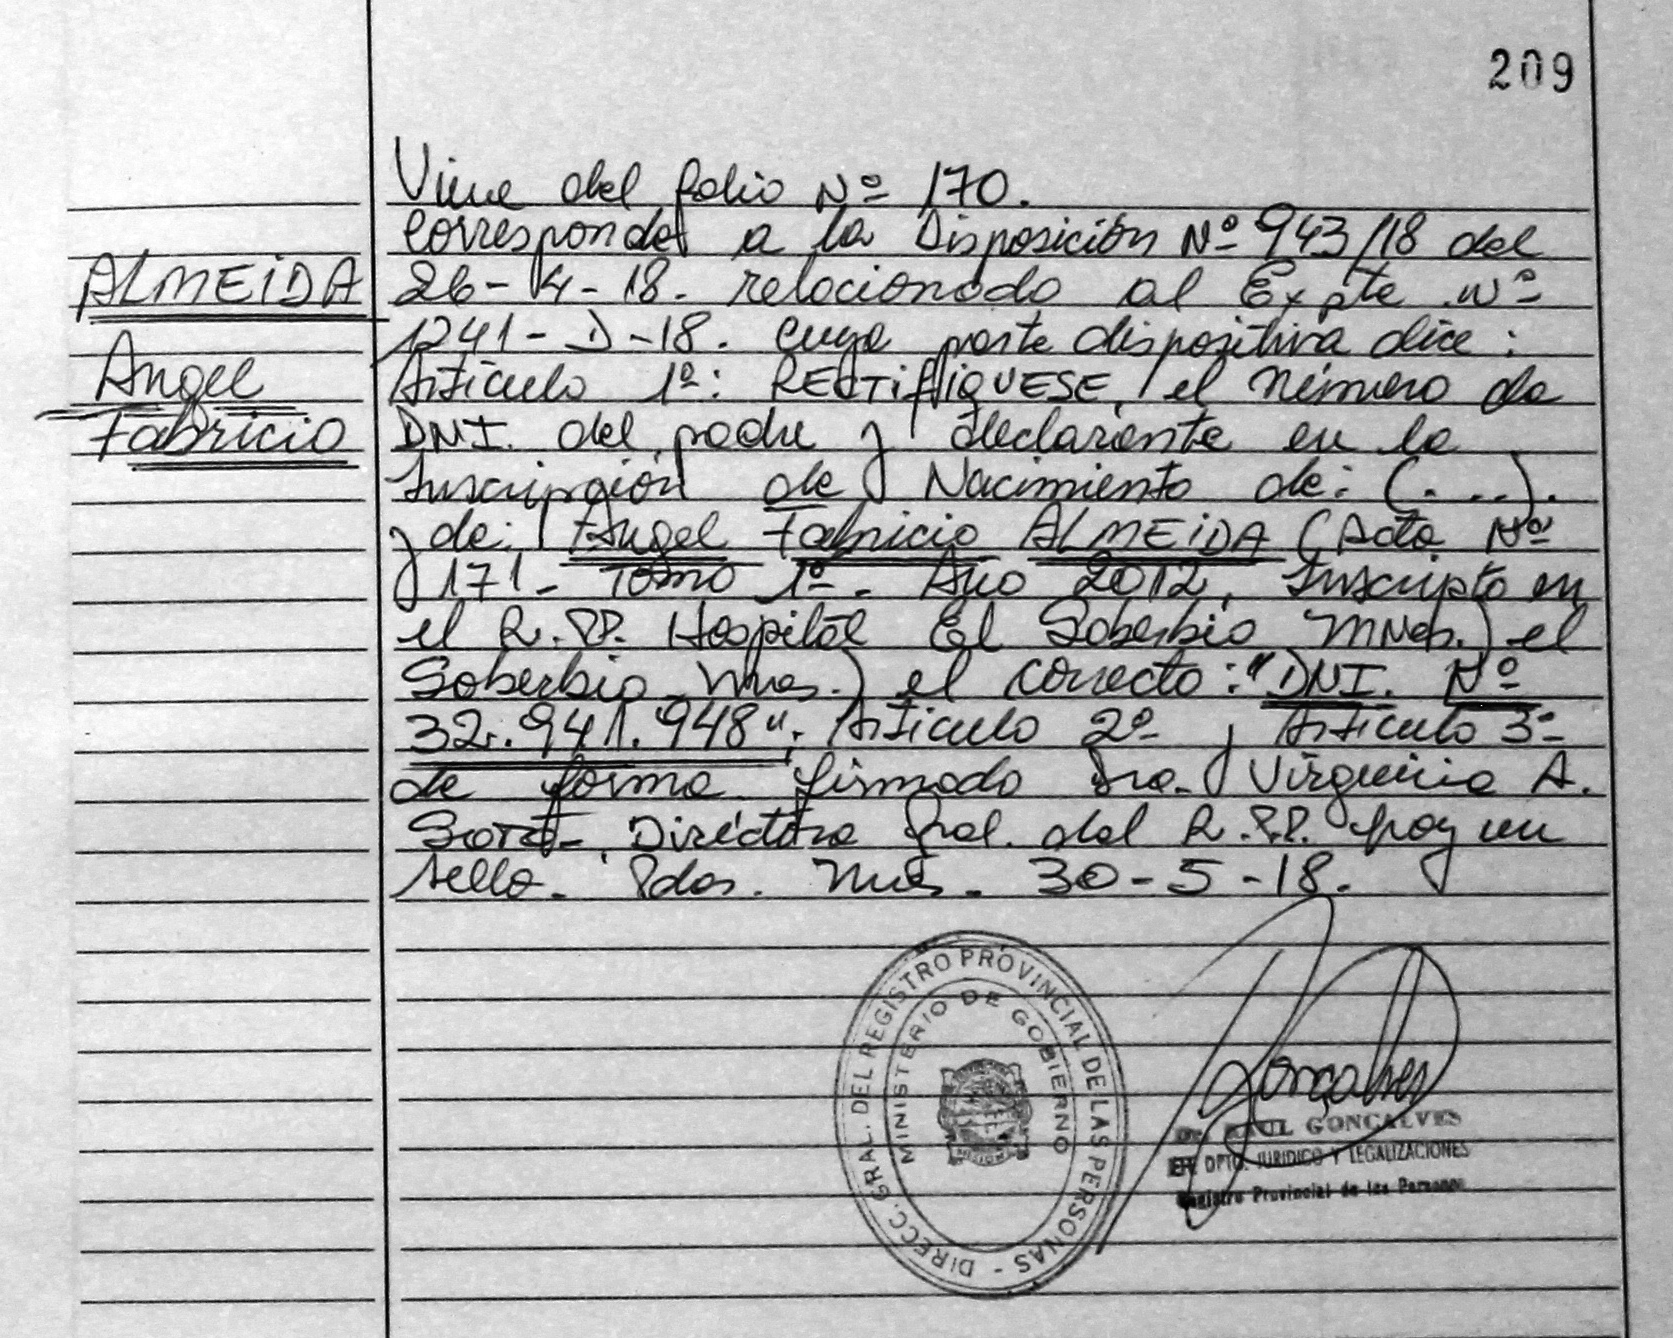 209
Viene del folio Nº 170.
corresponde a la Disposición Nº 943/18 del
ALMEIDA
26-4-18. relacionado al Expte Nº
1241-D-18. cuya parte dispositiva dice:
Angel
Artículo 1º: RECTIFIQUESE, el número de
Fabricio
DNI. del padre y declarante en la
Inscripción de Nacimiento de: (...).
y de: Angel Fabricio ALMEIDA (Acta Nº
171- Tomo 1º. Año 2012, Inscripto en
el R.PP. Hospital El Soberbio Mnes.) el
Soberbio Mnes.) el correcto: "DNI. Nº
32.941.948"; Artículo 2º y Artículo 3º
de forma firmado Dra. Virginia A.
Directora Gral. del R.P.P. hay un
sello. Pdas. Mnes. 30-5-18.
DIRECC. GRAL. DEL REGISTRO PROVINCIAL DE LAS PERSONAS -
MINISTERIO DE GOBIERNO
MISIONES
Goncalves
RAUL GONCALVES
DPTO. JURIDICO Y LEGALIZACIONES
Registro Provincial de las Personas